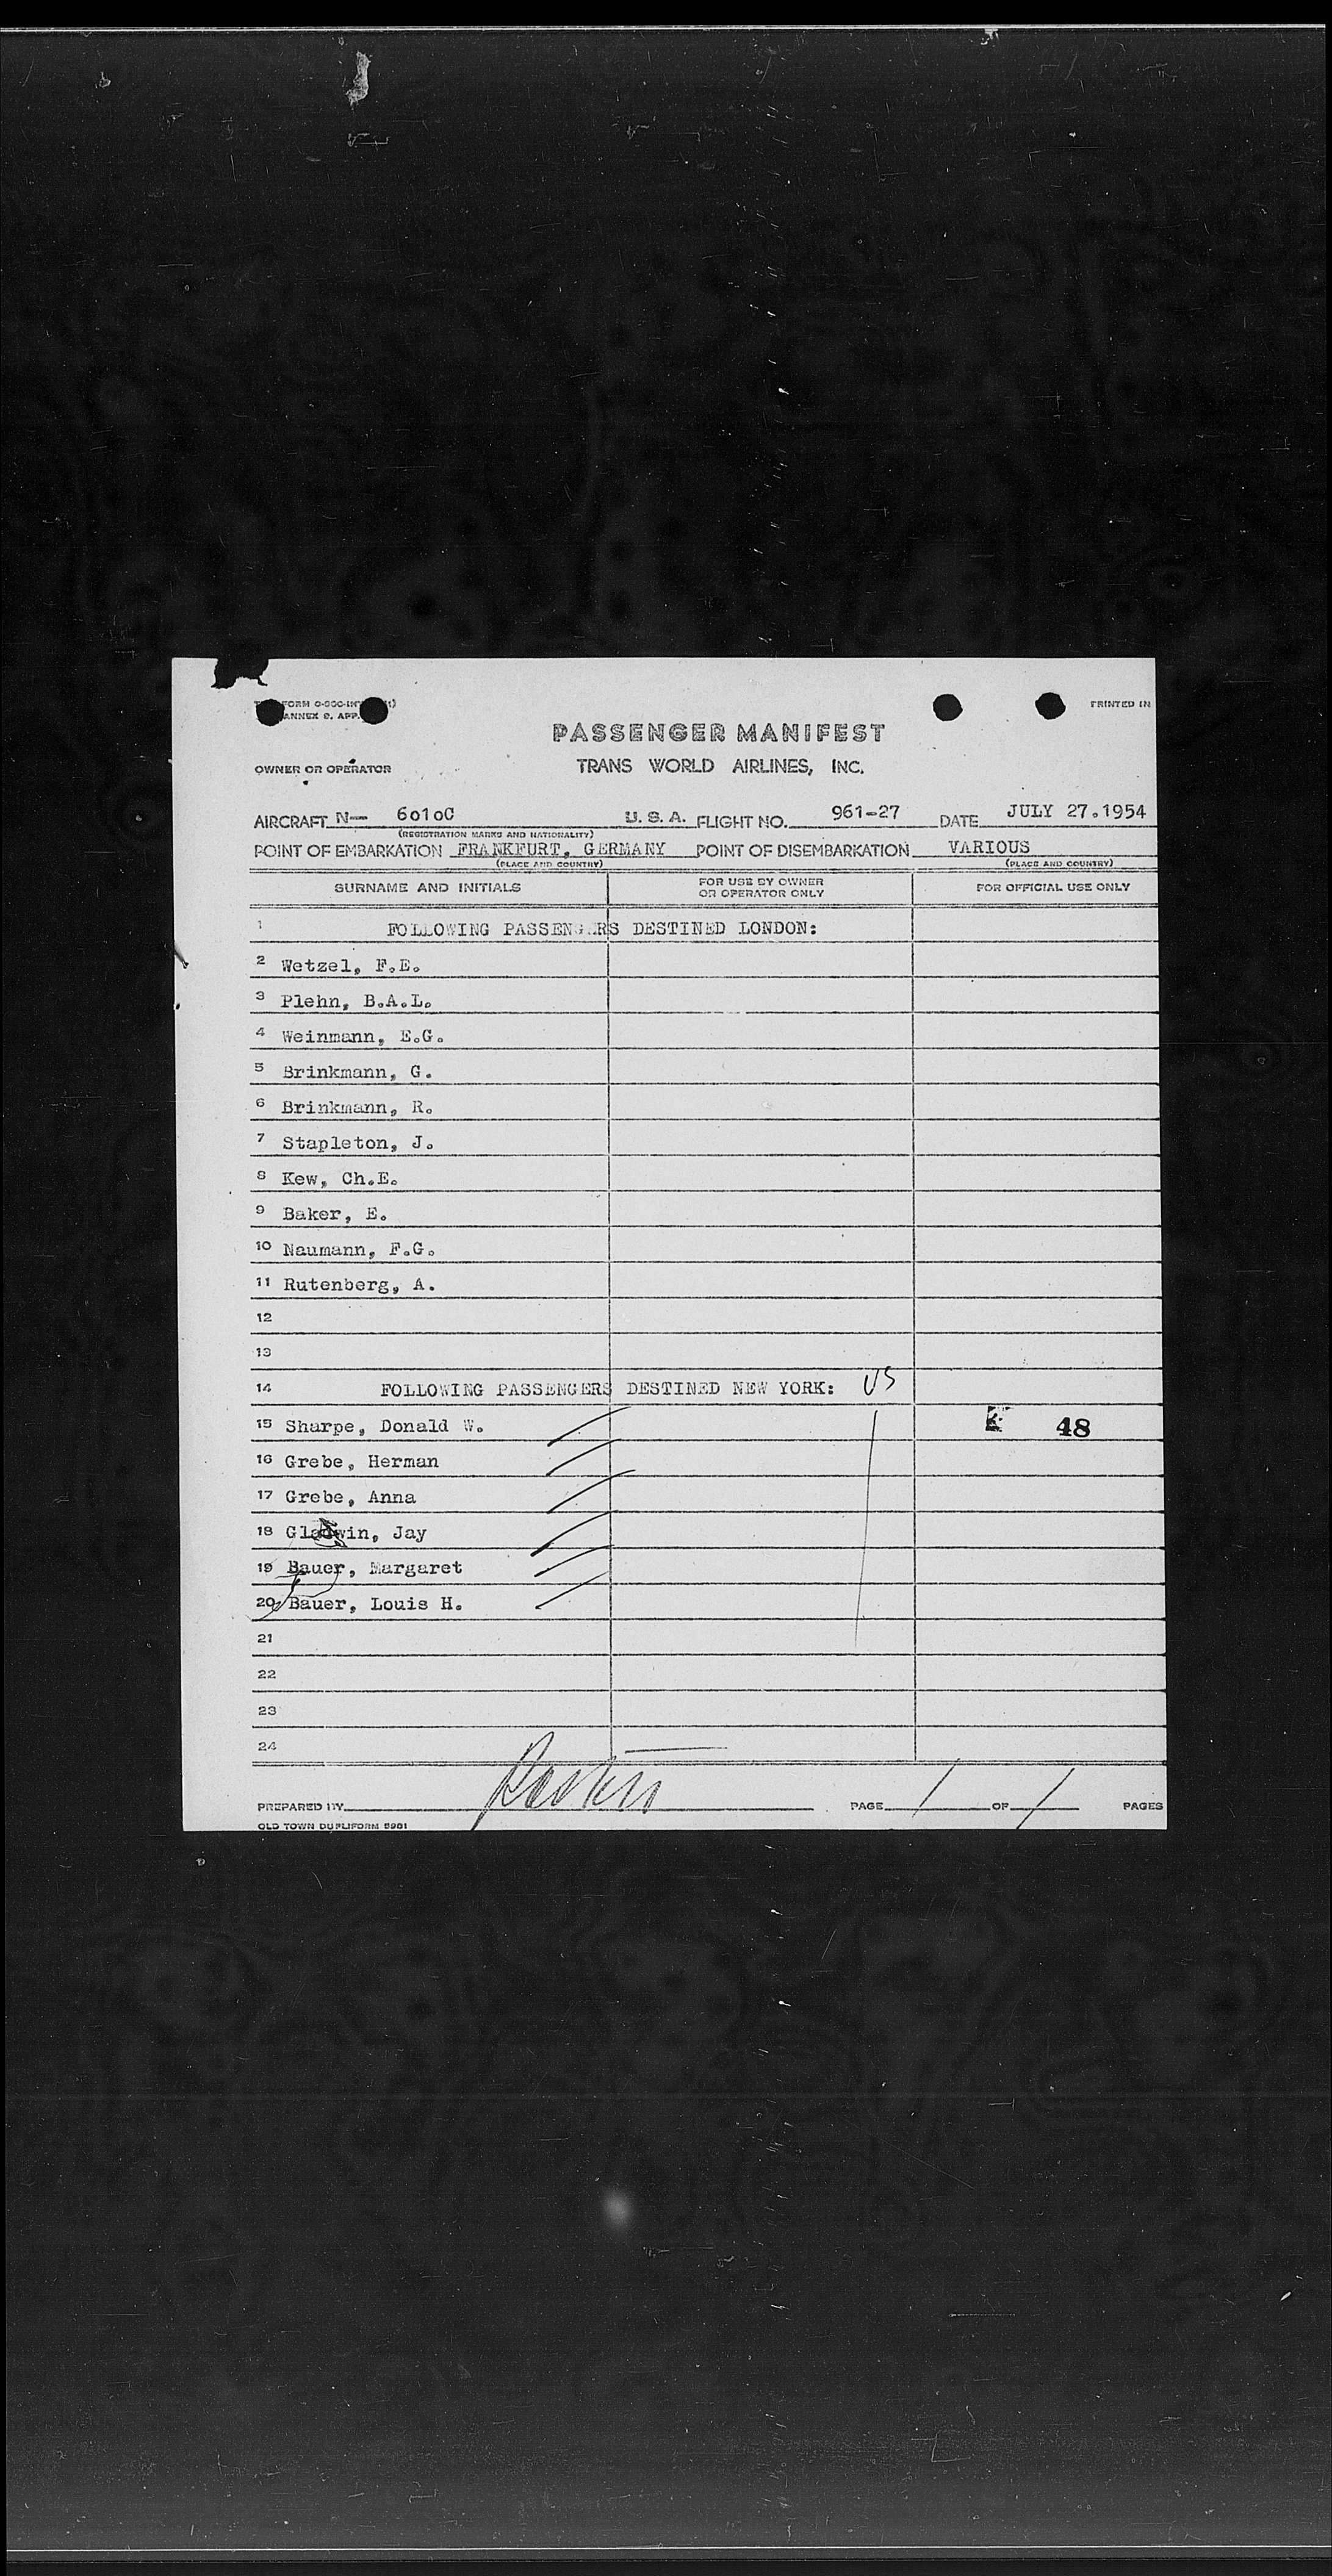 FORM
ANNEX 9, APP.
PRINTED IN
PASSENGER MANIFEST
OWNER OR OPERATOR
TRANS WORLD AIRLINES, INC.
AIRCRAFT N-- 6010C U.S.A. FLIGHT NO. 961-27 DATE JULY 27.1954
(REGISTRATION MARKS AND NATIONALITY)
POINT OF EMBARKATION FRANKFURT, GERMANY POINT OF DISEMBARKATION VARIOUS
(PLACE AND COUNTRY) (PLACE AND COUNTRY)
SURNAME AND INITIALS FOR USE BY OWNER OR OPERATOR ONLY FOR OFFICIAL USE ONLY
1 FOLLOWING PASSENGERS DESTINED LONDON:
2 Wetzel, F.E.
3 Plehn, B.A.L.
4 Weinmann, E.G.
5 Brinkmann, G.
6 Brinkmann, R.
7 Stapleton, J.
8 Kew, Ch.E.
9 Baker, E.
10 Naumann, F.G.
11 Rutenberg, A.
12
13
14 FOLLOWING PASSENGERS DESTINED NEW YORK: US
15 Sharpe, Donald W. 48
16 Grebe, Herman
17 Grebe, Anna
18 Gladwin, Jay
19 Bauer, Margaret
20 Bauer, Louis H.
21
22
23
24
PREPARED BY PAGE 1 OF 1 PAGES
OLD TOWN DUPLIFORM 5981